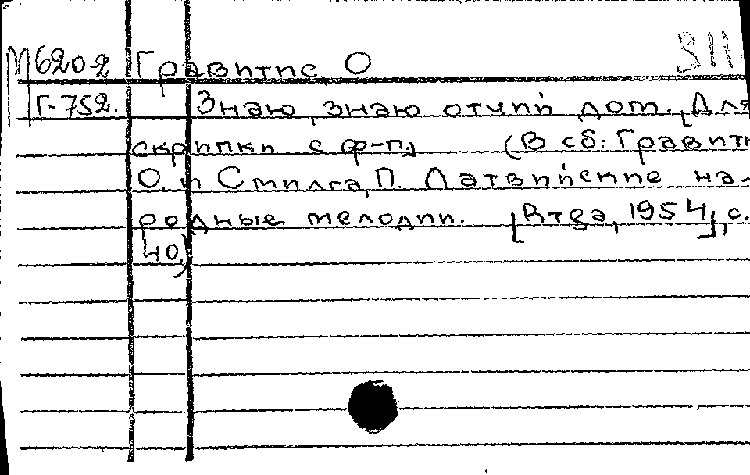 М620-2 Гравитис, О 311
Г-752. Знаю, знаю отчий дом. [Для
скрипки с ф-п.] (В сб: Гравити
О. и Смилга, П. Латвийские на-
родные мелодии. [Рига, 1954], с.
40)